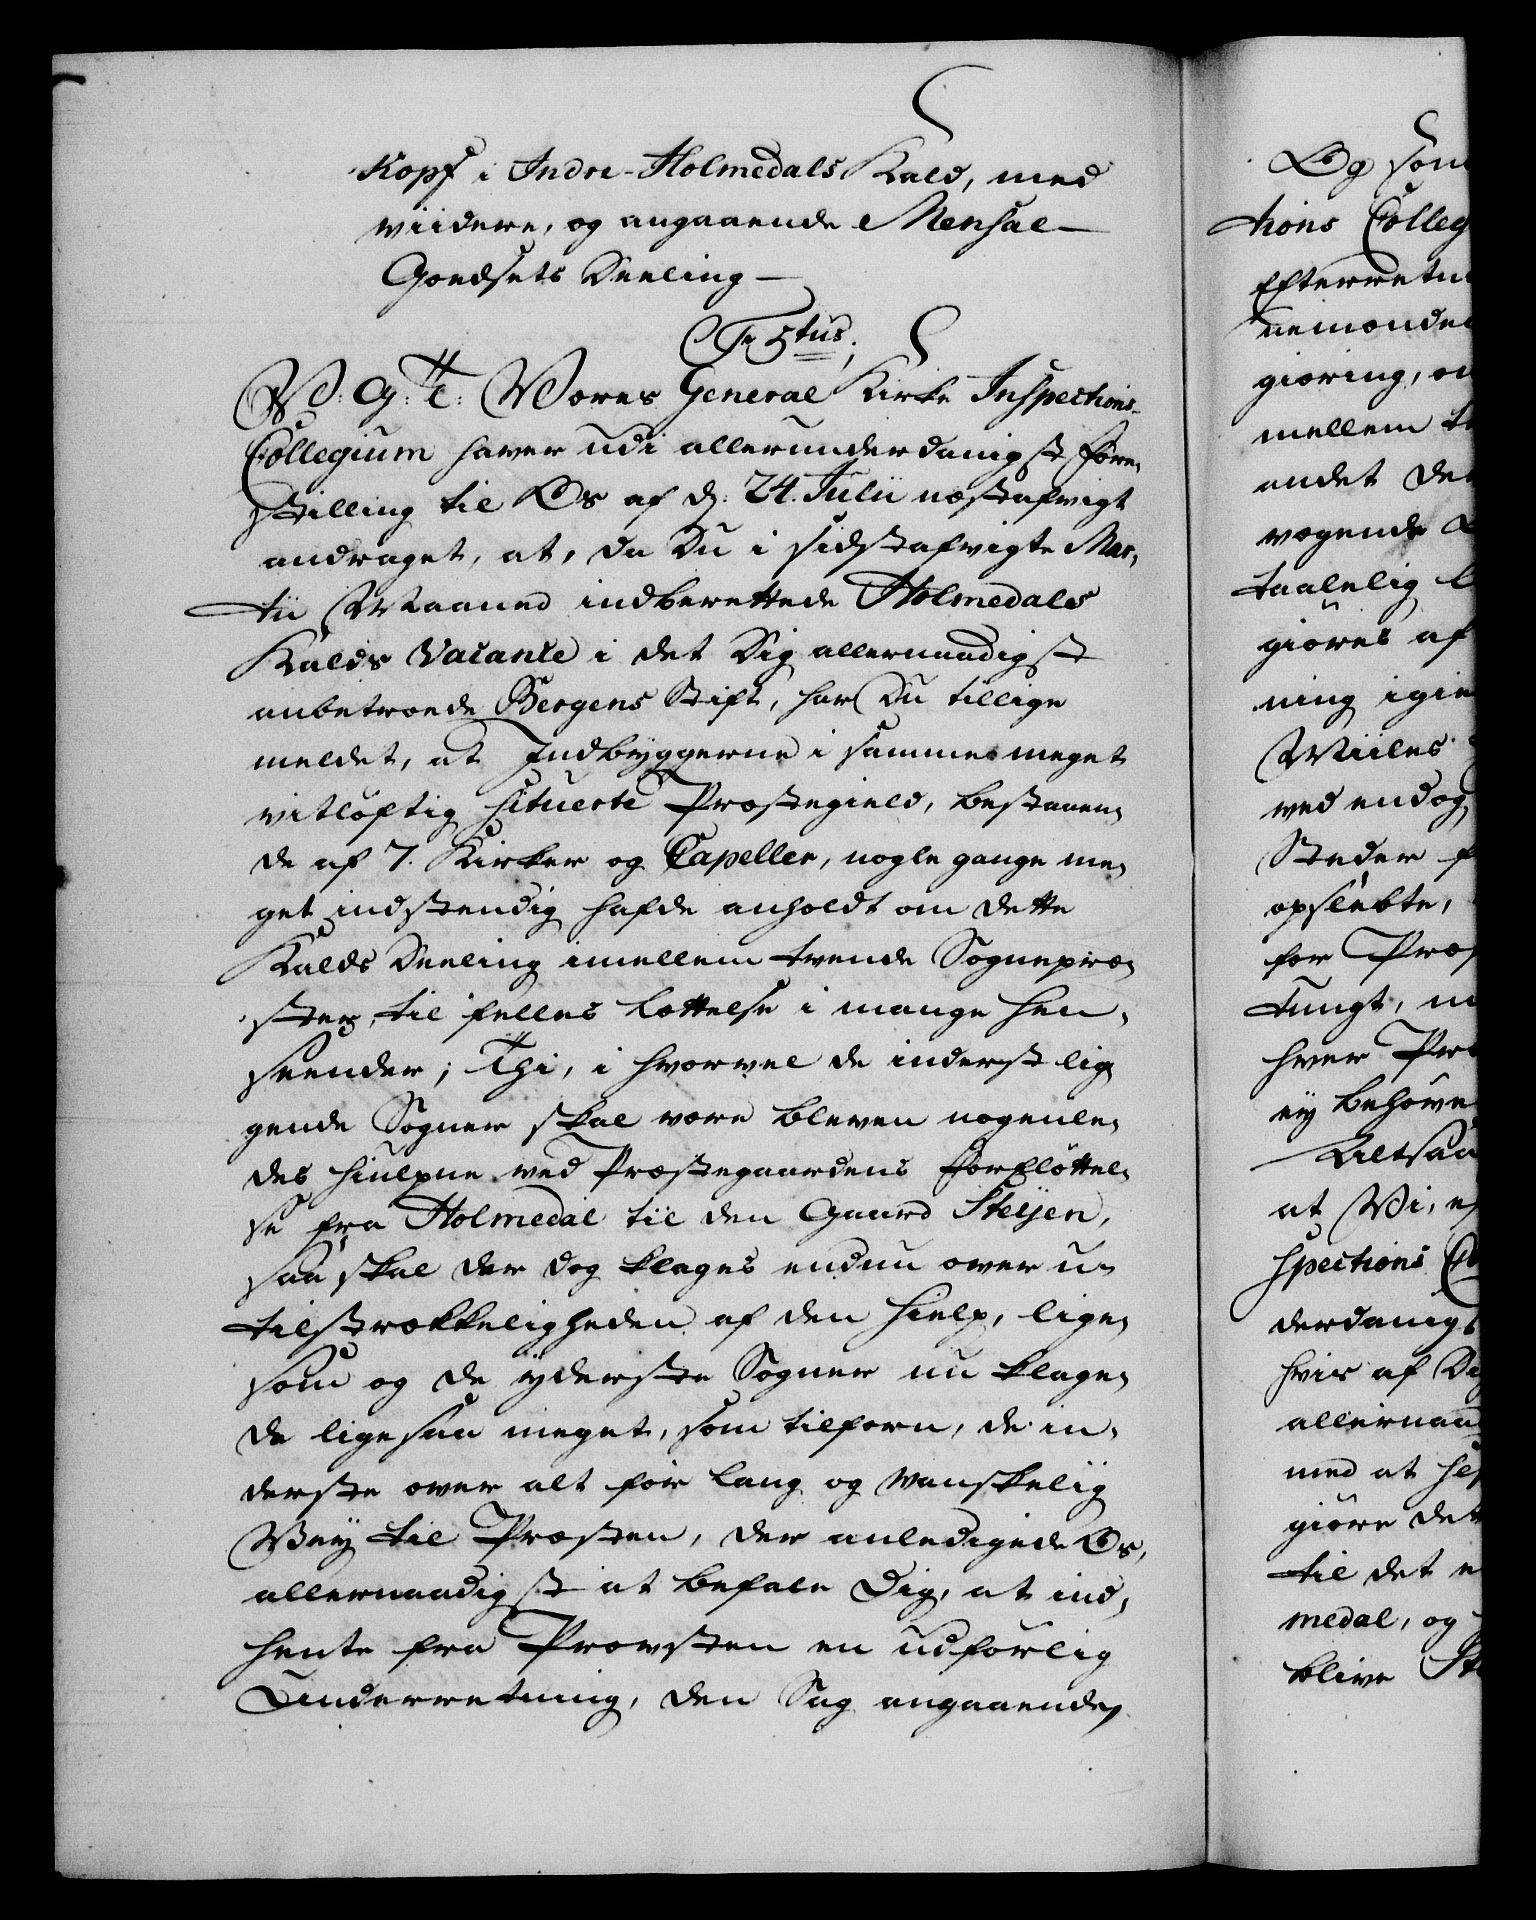 Kopf i Indre-Holmedals Kald, med
viidere, og angaaende Mensal
Goedsets Deeling
Fr 5tus.
V: G: T: Vores General Kirke Inspections
Collegium haver udi allerunderdanigst Fore-
stilling til Os af d: 24. Julii næstafvigt
andraget, at, da Du i sidstafvigte Mar-
tii Maaned indberettede Holmedals
Kalds Vacance i det Dig allernaadigst
anbetroede Bergens Stift, har Du tillige
meldet, at Indbyggerne i samme meget
vitløftig situerte Præstegield, bestaaen-
de af 7. Kirker og Capeller, nogle gange me-
get indstendig hafde anholdt om dette
Kalds Deeling imellem tvende Sognepræ-
ster, til felles Lættelse i mange Hen-
seender; Thi, i hvorvel de inderst lig
gende Sogner skal være bleven nogenle-
des hiulpne ved Præstegaardens Forfløttel-
se fra Holmedal til den Gaard Steijen,
saa skal der dog klages endnu over u-
tilstrækkeligheden af den Hielp, lige-
som og de ÿderste Sogner nu klage-
de ligesaa meget, som tilforn, de in-
derste over alt for lang og vanskelig
Vey til Præsten, der anledigede Os,
allernaadigst at befale Dig, at ind-
hente fra Provsten en udførlig
Underretning, den Sag angaaende,
Og som
tions Colleg
Efterretn
giøring, o
mellem t
andet de
taalelig
giøres af
ning igie
Miiles
ved endog
Steder f
opsløbte,
for Præs
tungt, m
hver Præ
ey behøve
Altsaa
at Vi, e
spections Co
derdanigs
hvis af Di
allernaad
med at he
giøre det
til det e
medal, og
blive St